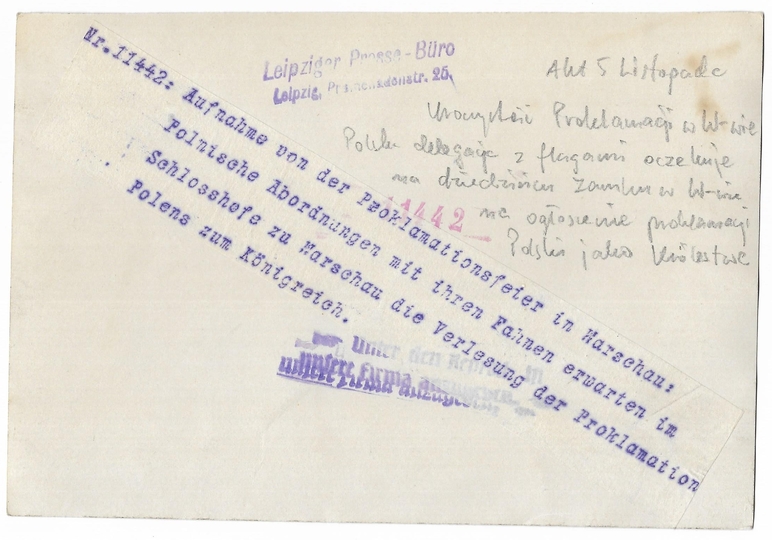 Leipziger Presse-Büro
Leipzig, Promenadenstr. 25.
Akt 5 Listopada
Uroczystość Proklamacji w W-wie
Polska delegacja z flagami oczekuje
na dziedzińcu Zamku w W-wie
na ogłoszenie proklamacji
Polski jako Królestwa
11442
Nr.11442: Aufnahme von der Proklamationsfeier in Warschau:
Polnische Abordnungen mit ihren Fahnen erwarten im
Schlosshofe zu Warschau die Verlesung der Proklamation
Polens zum Königreich.
Unter den
unsere Firma